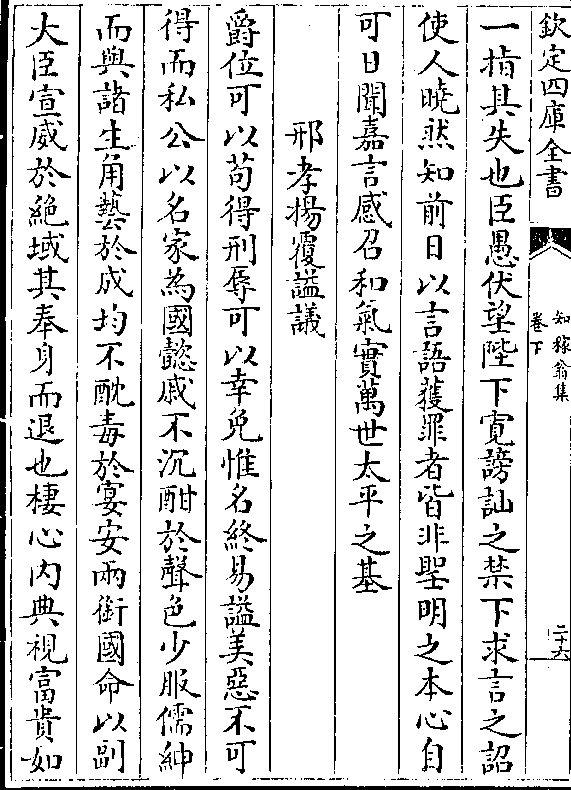 欽定四庫全書
知稼翁集
卷下
二十六
一指其失也臣愚伏望陛下寛謗訕之禁下求言之詔
使人曉然知前日以言語獲罪者皆非聖明之本心自
可日聞嘉言感召和氣實萬世太平之基
邢孝揚覆謚議
爵位可以茍得刑辱可以幸免惟名終易謚美惡不可
得而私公以名家為國懿戚不沉酣於聲色少服儒紳
而與諸生角藝於成均不酖毒於宴安兩銜國命以副
大臣宣威於絶域其奉身而退也棲心内典視富貴如